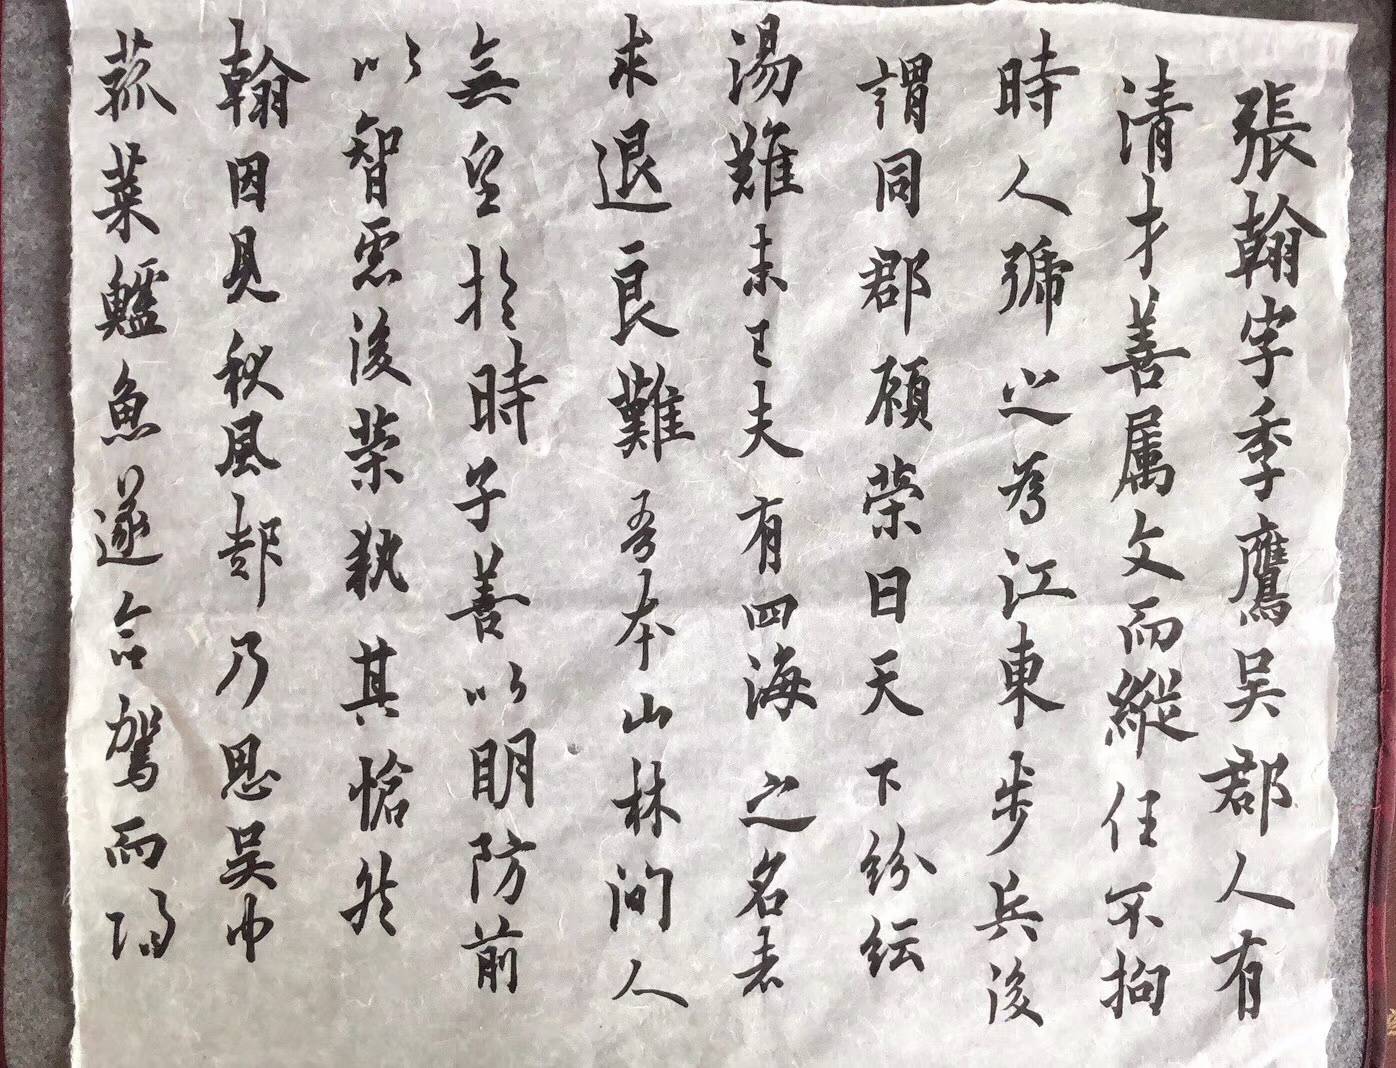 張翰字季鷹吴郡人有
清才善属文而縱任不拘
時人號之為江東步兵後
謂同郡顧榮曰天下紛紜
湯難未已夫有四海之名者
求退良難吾本山林間人
無望於時子善以明防前
以智慮後榮執其愴然
翰因見秋風起乃思吴中
菰菜鱸魚遂命駕而歸